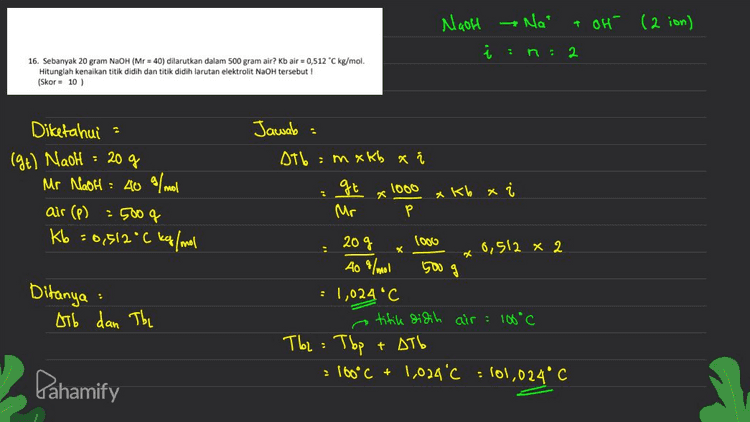 NaOH → Na⁺ + OH⁻ (2 ion)
i = n = 2
16. Sebanyak 20 gram NaOH (Mr = 40) dilarutkan dalam 500 gram air? Kb air = 0,512 °C kg/mol.
Hitunglah kenaikan titik didih dan titik didih larutan elektrolit NaOH tersebut !
(Skor = 10 )
Diketahui =
(gt) NaOH = 20 g
Mr NaOH = 40 g/mol
air (P) = 500 g
Kb = 0,512 °C kg/mol
Ditanya :
ΔTb dan TbL
Jawab :
ΔTb = m x Kb x i
= gt/Mr x 1000/P x Kb x i
= 20 g/40 g/mol x 1000/500 g x 0,512 x 2
= 1,024 °C
→ titik didih air = 100°C
TbL = Tbp + ΔTb
= 100°C + 1,024°C = 101,024°C
Pahamify